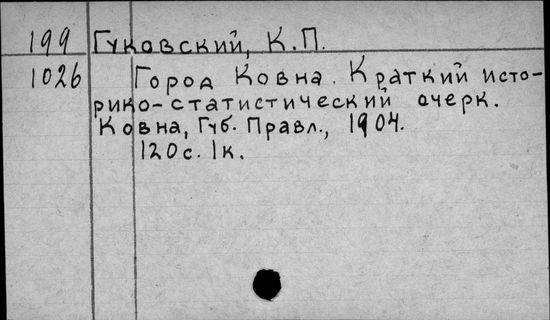 199 Гуковский, К.П.
1026 Город Ковна. Краткий исто-
рико-статистический очерк.
Ковна, Губ. Правл., 1904.
120с. 1к.